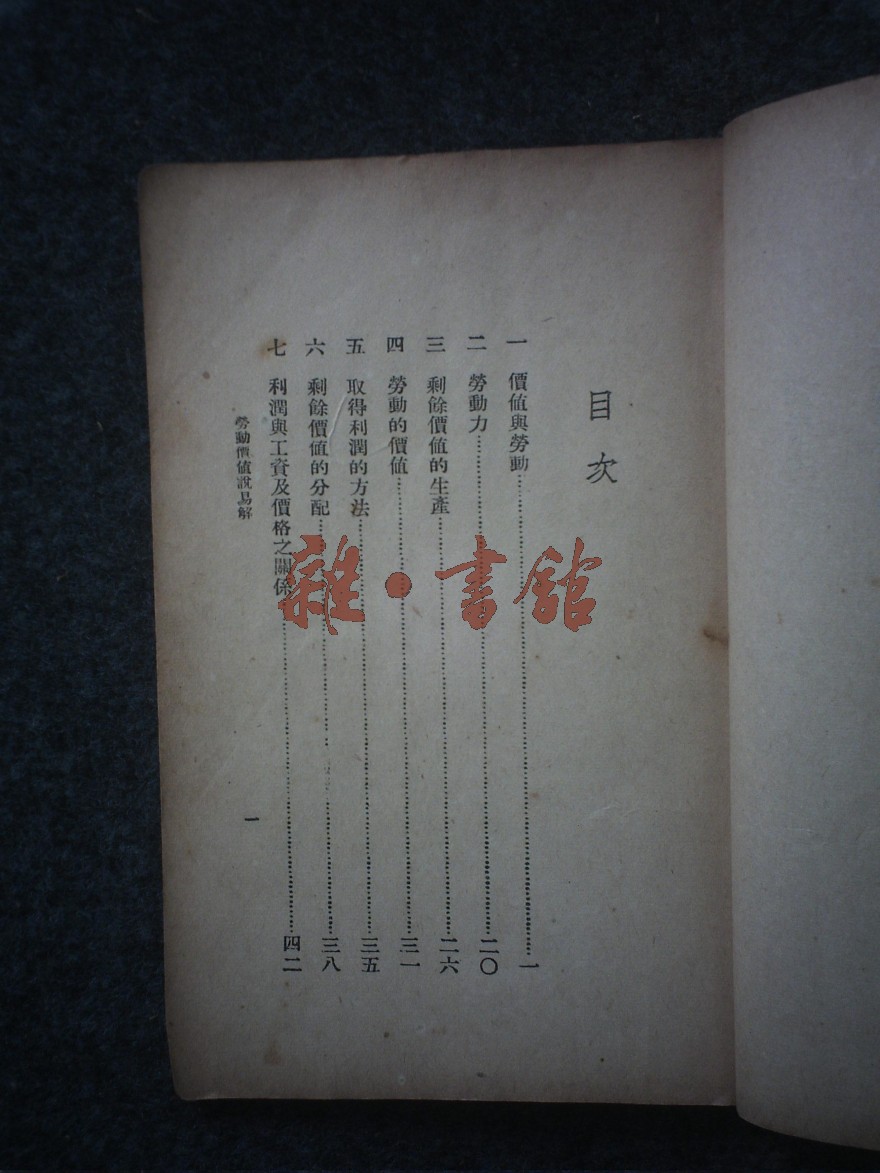 目次
一 價值與勞動……一
二 勞動力……二〇
三 剩餘價值的生產……二六
四 勞動的價值……三一
五 取得利潤的方法……三五
六 剩餘價值的分配……三八
七 利潤與工資及價格之關係……四二
勞動價值說易解
一
雜·書館